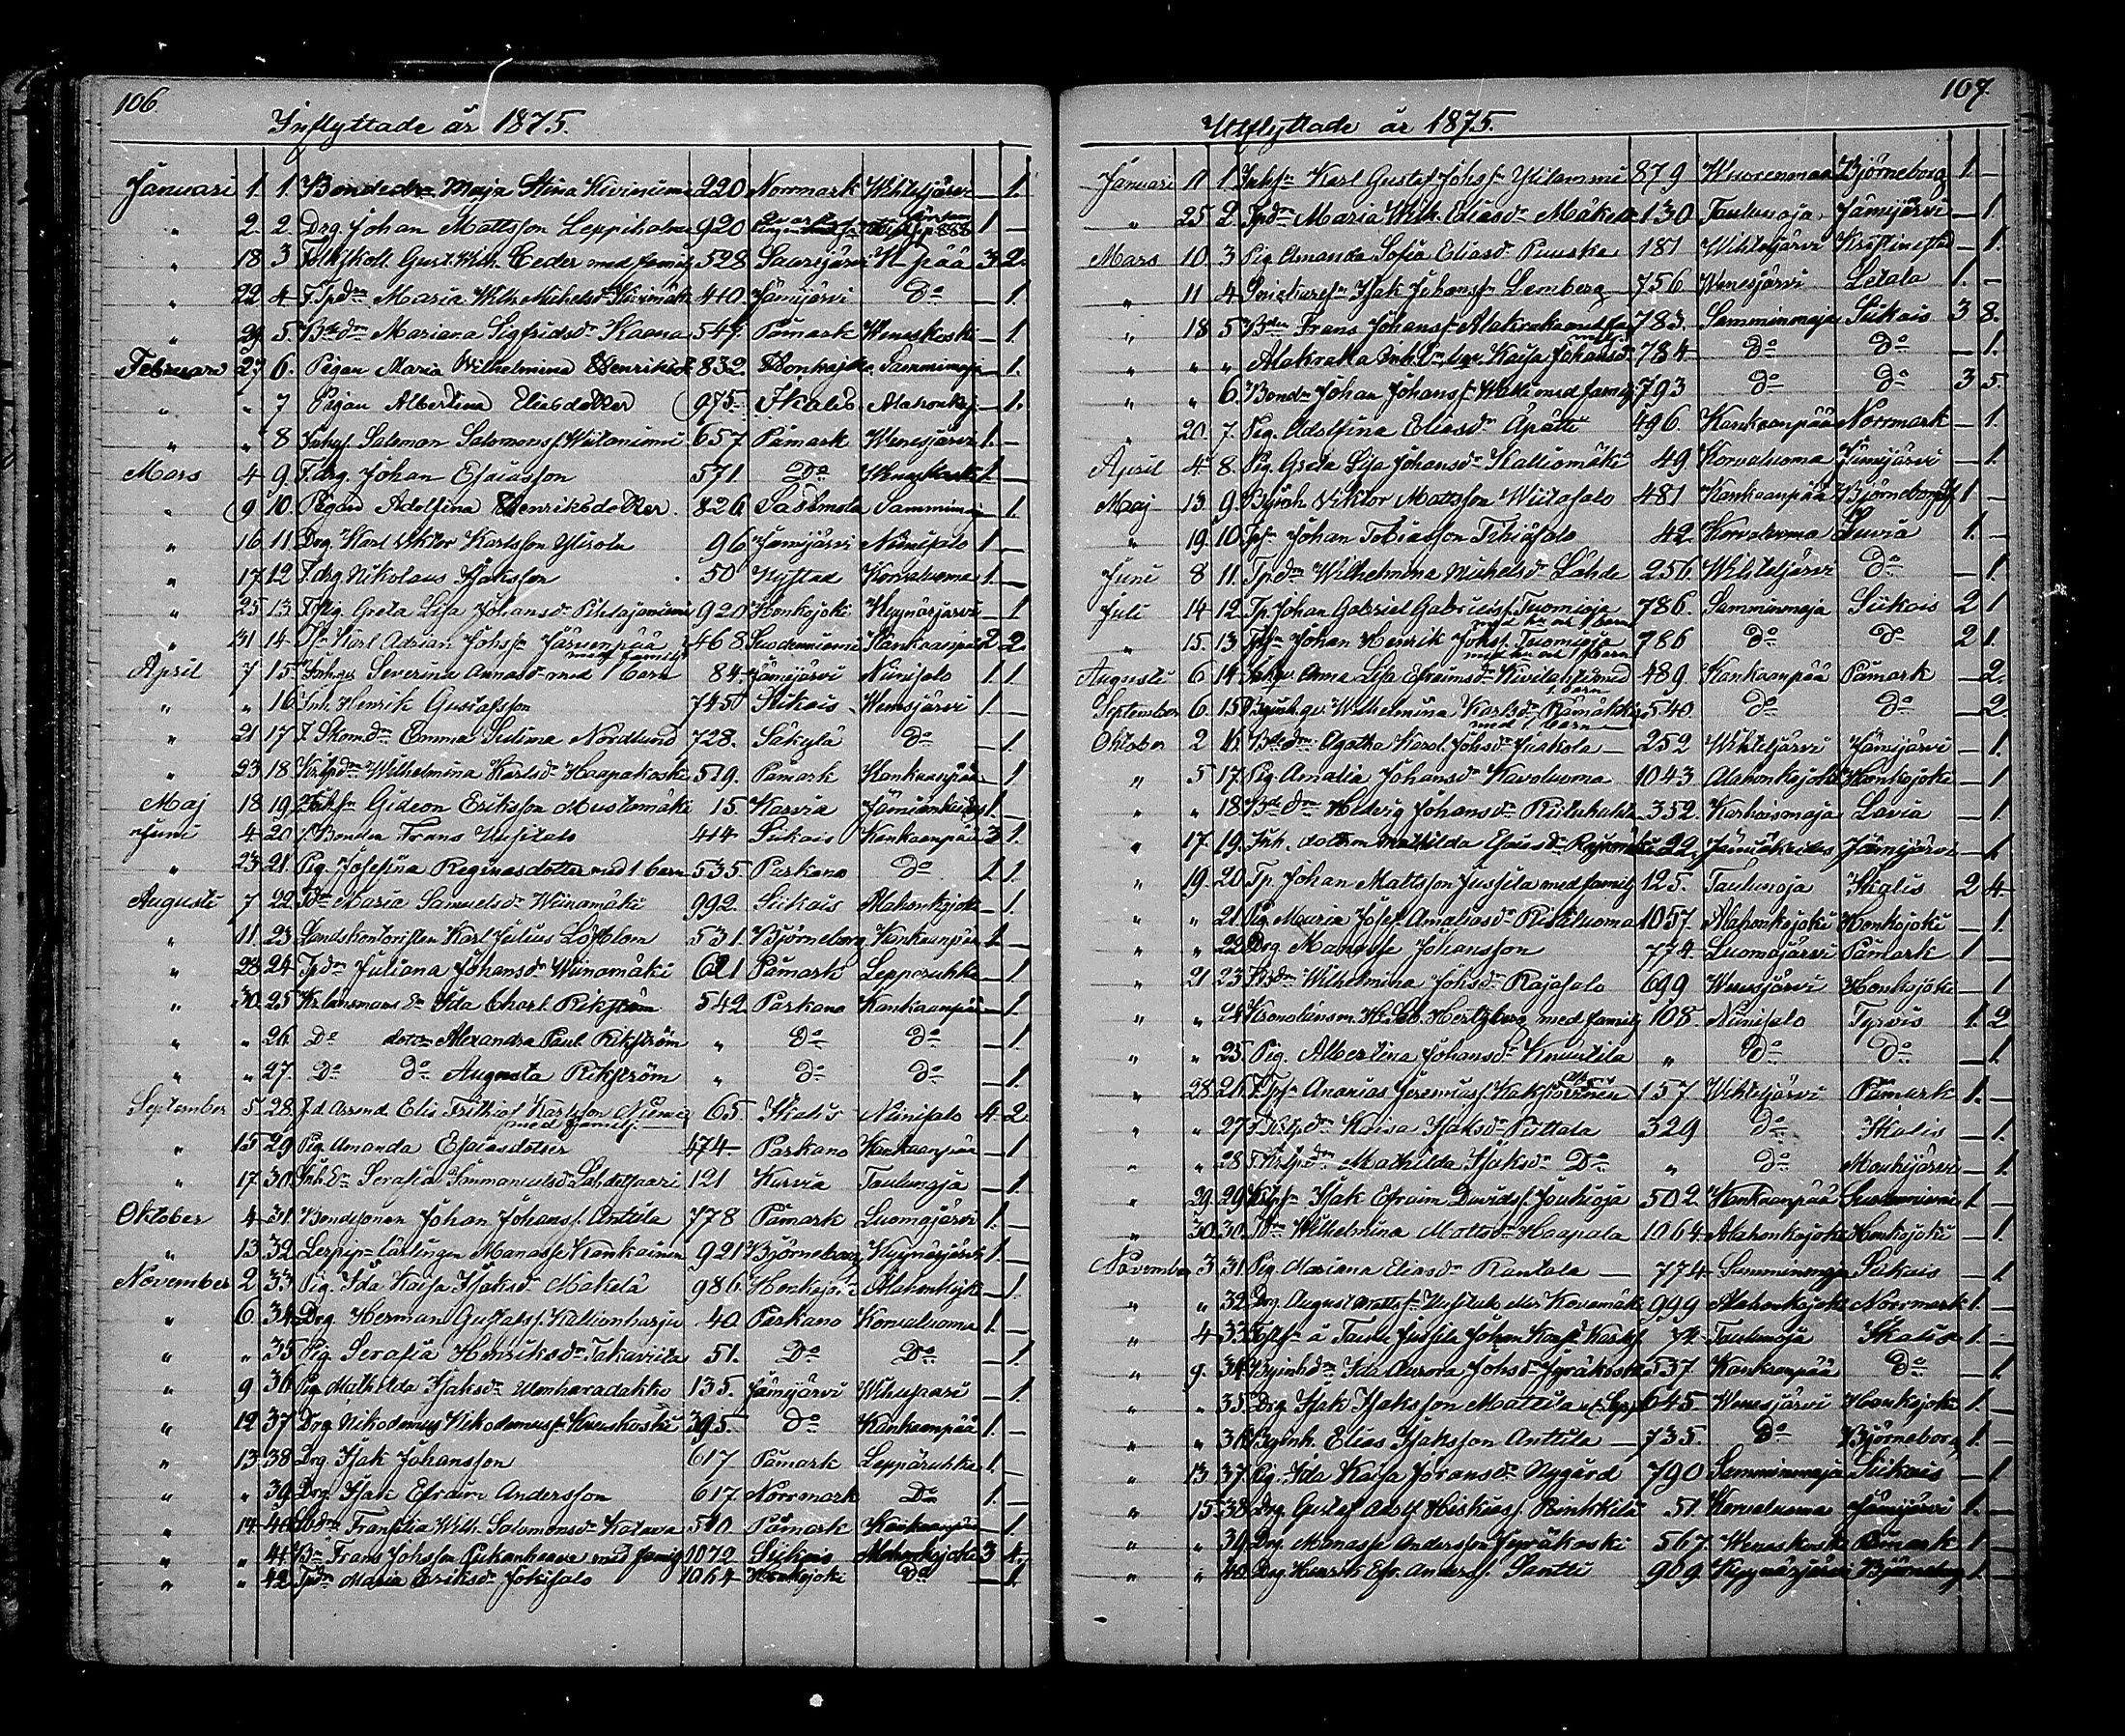 106.
Inflyttade år 1875.
Januari 1. 1. Bondedr Maja Stina Kiviniemi 220 Norrmark Wihteljärvi — 1.
" 2. 2. Drg. Johan Mattsson Leppiholm 920 1 —
" 18 3 Gust. Wilh. Ceder med familj 528 3 2.
" 22 4 Maria Wilh. Michelsdr 440 Jämijärvi Do — 1.
" 29. 5. Mariana Sigfridsdr Kaana 547. Påmark Weneskoski — 1.
Februari 27 6. Pigan Maria Wilhelmina Henriksdr 832. Honkajoki Samminmaja — 1.
" " 7 Pigan Albertina Eliasdotter 975. Ikalis Alahonkaj. — 1.
" " 8 Salomon Salomonss. Wiitaniemi 657. Påmark Wenesjärvi 1. —
Mars 4 9. F.drg. Johan Esaiasson 571. Do 1 —
" 9 10. Pigan Adolfina Henriksdotter. 826 Sastmola Samminmaj — 1
" 16 11 Drg. Karl Viktor Karlsson Ylisola 96 Jämijärvi Niinisalo 1 —
" 17. 12 F.drg. Nikolaus Isaksson 50 Nystad Korvaluoma 1. —
" 25 13 Greta Lisa Johansdr Pihlajaniemi 920 Honkojoki Kyynärjärvi — 1
" 31 14 Karl Adrian Johss. Järvenpää med familj 468. Suodenniemi Kankaanpää 2 2.
April 7 15. Severina Annasdr med 1 barn 84. Jämijärvi Niinisalo 1 1
" " 16 Inh. Henrik Gustafsson 745 Siikais Wenesjärvi 1. —
" 21 17 Emma Selima Nordlund 728. Säkylä Do — 1.
" 23 18 Wilhelmina Karlsdr Haapakoski 519. Påmark Kankaanpää — 1
Maj 18 19. Gideon Eriksson Mustamäki 15. Karvia 1. —
Juni 4 20 Bonden Frans Uusitalo 444 Siikais Kankaanpää 3 1.
" 23 21. Pig. Josefina Reginasdotter med 1 barn 535 Parkano Do 1 1.
Augusti 7 22. Maria Samuelsdr Wiinamäki 992. Siikais Alahonkojoki — 1.
" 11. 23 Landskontoristen Karl Julius Löfblom 531. Björneborg Kankaanpää 1. —
" 28 24 Juliana Johansdr Wiinamäki 621 Påmark Leppäruhka — 1
" 30. 25 Ida Charl. Rikström 542. Parkano Kankaanpää — 1.
" " 26. Do dotter Alexandra Paul. Rikström " Do Do — 1.
" " 27. Do Do Augusta Rikström " Do Do — 1.
September 5 28. Elis Frithiof Karlsson Niemi med familj 65. Ikalis Niinisalo 4 2
" 15 29 Pig. Amanda Esaiasdotter 474 Parkano Kankaanpää — 1
" 17. 30. Serafia Immanuelsdr Lahdensaari 121 Karvia Taulunoja — 1.
Oktober 4 31. Bondsonen Johan Johanss. Anttila 778 Påmark Luomajärvi 1. —
" 13 32 Manasse Kankainen 921 Björneborg Kyynärjärvi 1. —
November 2 33 Pig. Ida Kaisa Isaksdr Mäkelä 986. Honkojoki Alahonkojoki — 1.
" 6. 34 Drg. Herman Gustafss. Kallionharju 40 Parkano Korvaluoma 1. —
" " 35 Pig. Serafia Henriksdr Takaviita 51. Do Do — 1.
" 9 36 Pig. Mathilda Isaksdr 135. Jämijärvi — 1.
" 12 37 Drg. Nikodemus Nikodemuss. 395. Do Kankaanpää 1. —
" 13 38 Drg. Isak Johansson 617 Påmark Leppäruhka 1. —
" " 39 Drg. Isak Efraim Andersson 617. Norrmark Do 1. —
" 14 40 Wilh. Salomonsdr Katava 510 Påmark Kankaanpää — 1.
" " 41 Frans Johsson med familj 1072 Siikais Alahonkojoki 3 4.
" " 42 Maria Eriksdr Jokisalo 1064 Honkojoki Do — 1
107.
Utflyttade år 1875.
Januari 11 1 Karl Gustaf Johss. Ylilammi 879 Wuorenmaa Björneborg 1. —
" 25 2. Maria Wilh. Eliasdr Mäkelä 130. Taulunoja Jämijärvi — 1.
Mars 10. 3 Pig. Amanda Sofia Eliasdr Puuska 181 Wihteljärvi Kristinestad — 1.
" 11 4 Isak Johanss. Lemberg 756 Wenesjärvi Letala 1. —
" 18. 5 Frans Johanss. Alakraka med familj 783. Samminmaja Siikais 3 8.
" " " Alakraka Kaisa Johansdr 784 Do Do — 1.
" " 6. Johan Johanss. med familj 793 Do Do 3 5.
" 20. 7. Pig. Adolfina Eliasdr Äpätti 496. Kankaanpää Norrmark — 1.
April 4 8. Pig. Greta Lisa Johansdr Kalliomäki 49 Korvaluoma Jämijärvi — 1.
Maj 13. 9. Viktor Mattsson Wiitasalo 481 Kankaanpää Björneborg 1 —
" 19. 10. Johan Tobiasson 42. Korvaluoma Luvia 1. —
Juni 8 11. Wilhelmina Michelsdr Lähde 256. Wihteljärvi Do — 1.
Juli 14 12. Johan Gabriel Gabrielss. Tuomioja 786. Samminmaja Siikais 2 1
" 15. 13 Johan Henrik Johss. Tuomioja 786 Do Do 2 1.
Augusti 6 14 Anna Lisa Efraimsdr med 1 barn 489. Kankaanpää Påmark — 2.
September 6. 15. Wilhelmina Karlsdr med 1 barn 540. Do Do — 2.
Oktober 2 16. Agatha Karol. Johsdr Juskola 252 Wihteljärvi Jämijärvi — 1.
" 5 17. Pig. Amalia Johansdr Kavoluoma 1043. Alahonkojoki Honkojoki — 1
" " 18 Hedvig Johansdr 352. Karhoismaja Lavia — 1
" 17. 19. Mathilda Esaiasdr 22. Jämijärvi — 1
" 19. 20 Tp. Johan Mattsson Jussila med familj 125. Taulunoja Ikalis 2 4
" " 21. Josef. Amaliasdr Riskuluoma 1057. Alahonkojoki Honkojoki — 1.
" " 22 Drg. Manasse Johansson 774. Luomajärvi Påmark 1 —
" 21 23 Wilhelmina Johsdr Rajasalo 699 Wenesjärvi Honkojoki — 1
" " 24 Hertzberg med familj 108. Niinisalo Tyrvis 1. 2
" " 25 Pig. Albertina Johansdr Knuutila " Do Do — 1
" 28 26. Ananias Jeremiass. 157. Wihteljärvi Påmark 1. —
" " 27 Kaisa Isaksdr Puttala 329 Do Ikalis — 1.
" " 28 Mathilda Isaksdr Do " Do Mouhijärvi — 1
" 29. 29. Isak Efraim Davidss. Jouhioja 502. Kankaanpää Suodenniemi 1 —
" 30. 30. Wilhelmina Mattsdr Haapala 1064 Alahonkojoki Honkojoki — 1
November 3 31. Pig. Mariana Eliasdr Rantala 774 Samminmaja Siikais — 1
" " 32 Drg. August Mattss. Uusitalo eller Kovamäki 999 Alahonkojoki Norrmark 1. —
" 4 33 Jussila Johan Karlss. 74. Taulunoja Ikalis 1 —
" 9. 34 Ida Aurora Johsdr Jyräkoski 537. Kankaanpää Do — 1
" " 35. Drg. Isak Isaksson Mattila 645. Wenesjärvi Honkojoki 1 —
" " 36 Elias Isaksson Anttila 735. Do Björneborg 1. —
" 13 37. Pig. Ida Kaisa Johansdr Nygård 790 Samminmaja Siikais — 1
" 15 38 Drg. Gustaf Adolf Hiskiass. 51. Korvaluoma Jämijärvi 1. —
" " 39 Drg. Manasse Andersson Jyräkoski 567. Weneskoski Påmark 1 —
" " 40. Drg. Henrik Efr. Anderss. Santti 909. Kyynärjärvi Björneborg 1. —